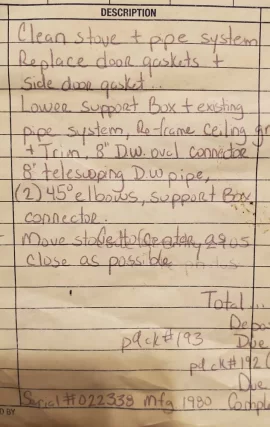 DESCRIPTION
Clean stove + pipe system
Replace door gaskets +
side door gasket..
Lower support Box + existing
pipe system, Re-frame Ceiling
+ Trim, 8" D.W. oval connector
8" telescoping D.W pipe,
(2) 45° elbows, support Box
connector.
Move
close as possible
Total...
Depo
pd ck#193 Due
pd ck#192
Due
Serial #022338 Mfg 1980 Comple
D BY